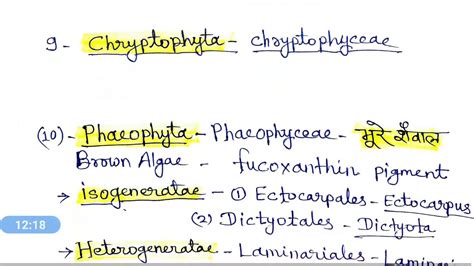 9- Chryptophyta- chryptophyceae
(10)- Phaeophyta - Phaeophyceae- भूरे शैवाल
Brown Algae - fucoxanthin pigment
→ isogeneratae - (1) Ectocarpales- Ectocarpus
(2) Dictyotales- Dictyota
12:18
→ Heterogeneratae - Laminariales-